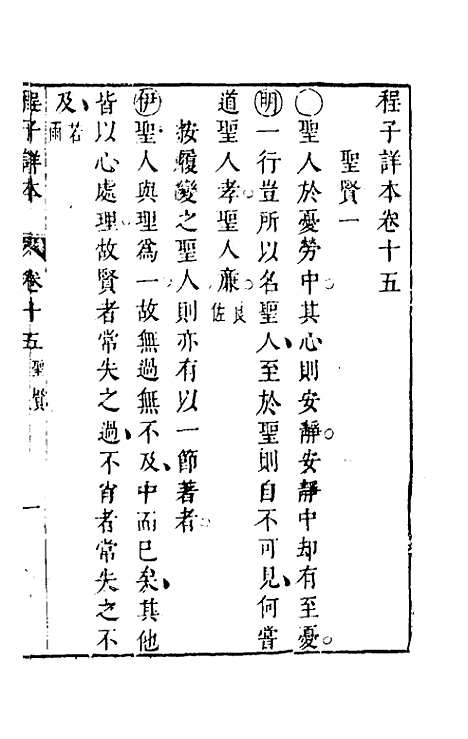 程子詳本卷十五
聖賢一
○聖人於憂勞中其心則安靜安靜中却有至憂
明一行豈所以名聖人至於聖則自不可見何嘗
道聖人孝聖人廉良佐
按履變之聖人則亦有以一節著者
伊聖人與理爲一故無過無不及中而已矣其他
皆以心處理故賢者常失之過不肖者常失之不
及若雨
程子詳本
卷十五
聖賢
一